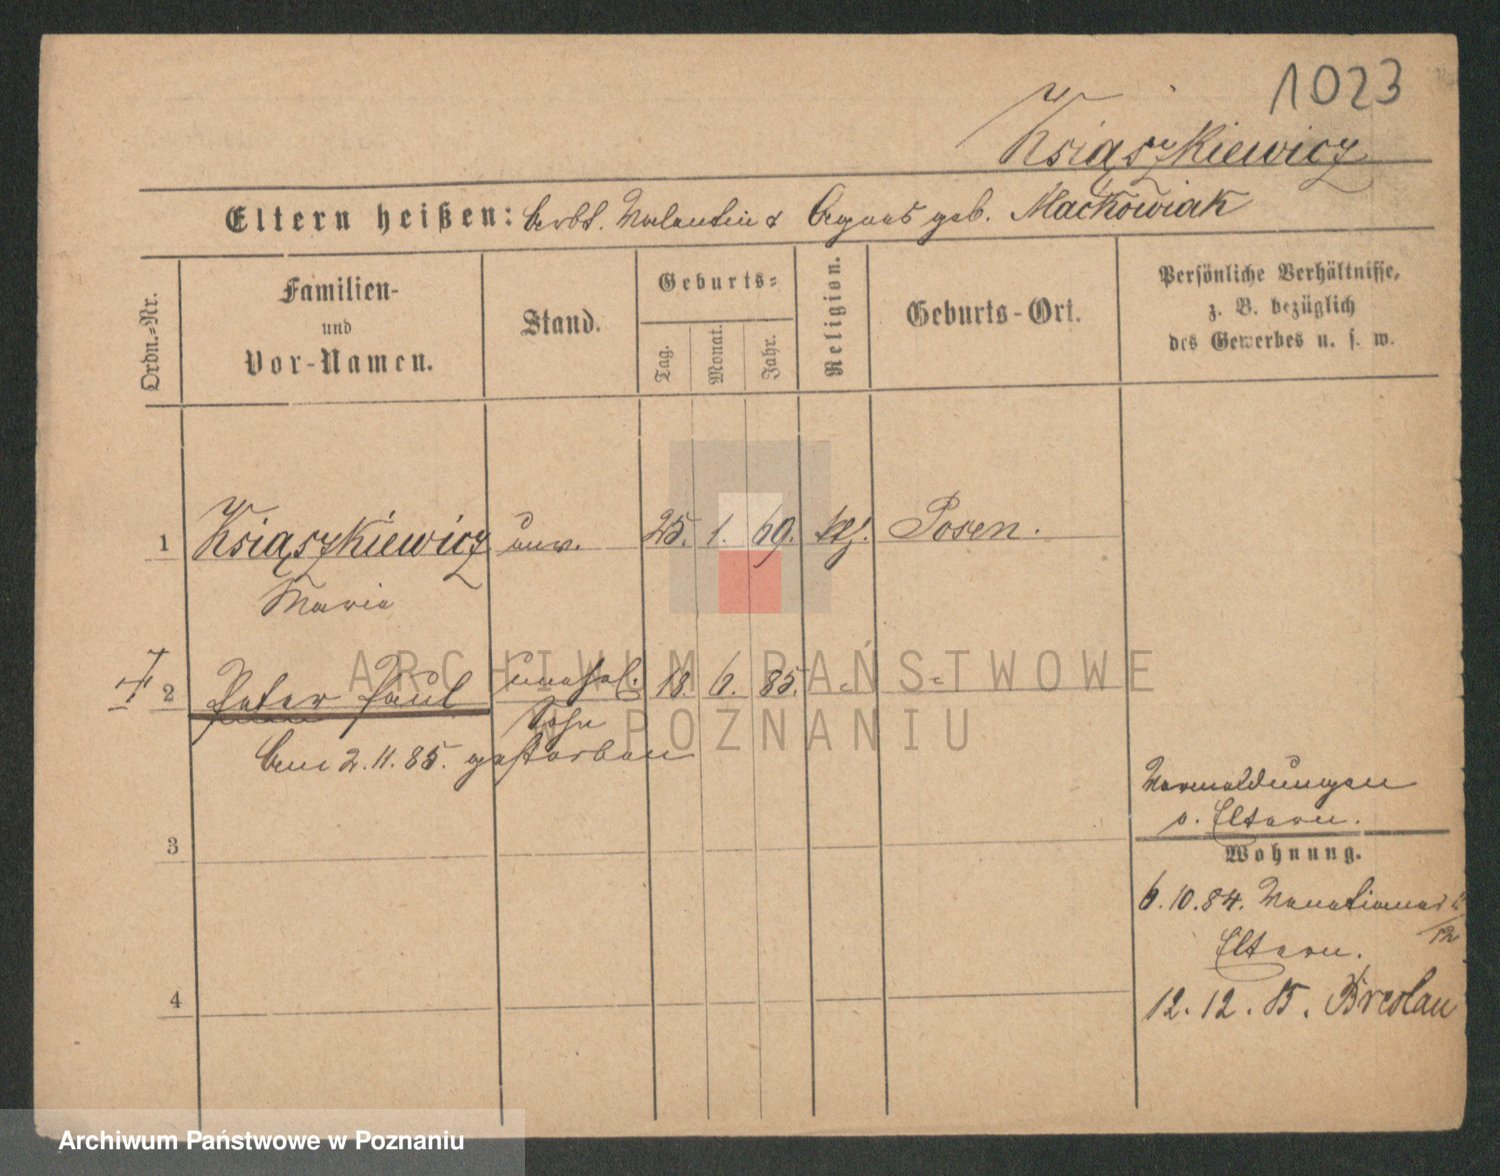 1023
Książkiewicz
Eltern heißen: Arbt. Valentin & Agnes geb. Maćkowiak
Ordn.-Nr.
Familien-
und
Vor-Namen.
Stand.
Geburts-
Tag.
Monat.
Jahr.
Religion.
Geburts-Ort.
Persönliche Verhältnisse,
z. B. bezüglich
des Gewerbes u. s. w.
1 Książkiewicz unv. 25. 1. 69. kth. Posen.
Maria
2 Peter Paul unehel. 18. 6. 85. " "
Sohn
Am 2.11.85. gestorben
Vormeldungen
s. Eltern.
3
Wohnung.
6.10.84. Venetianerst.
12
Eltern.
4
12.12.85. Breslau
ARCHIWUM PAŃSTWOWE
W POZNANIU
Archiwum Państwowe w Poznaniu